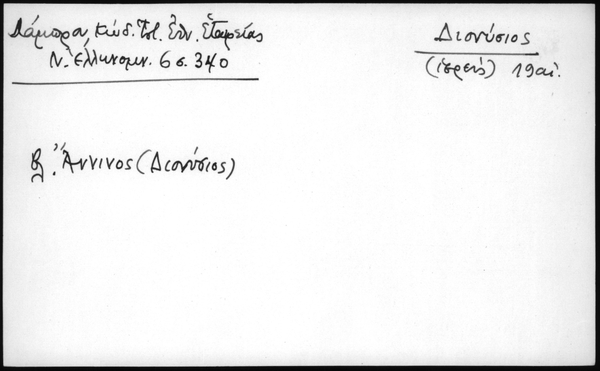 Λάμπρου, Κώδ. Ἱστ. Ἐθν. Ἑταιρείας
Ν. Ἑλληνομν. 6 σ. 340
Διονύσιος
(ἱερεύς) 19 αἰ.
βλ. Ἄννινος (Διονύσιος)